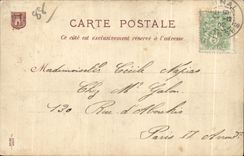 886
CARTE POSTALE
Ce côté est exclusivement réservé à l'adresse.
Mademoiselle Cécile Napias
Chez Mr
130 Rue d'Aboukir
Paris